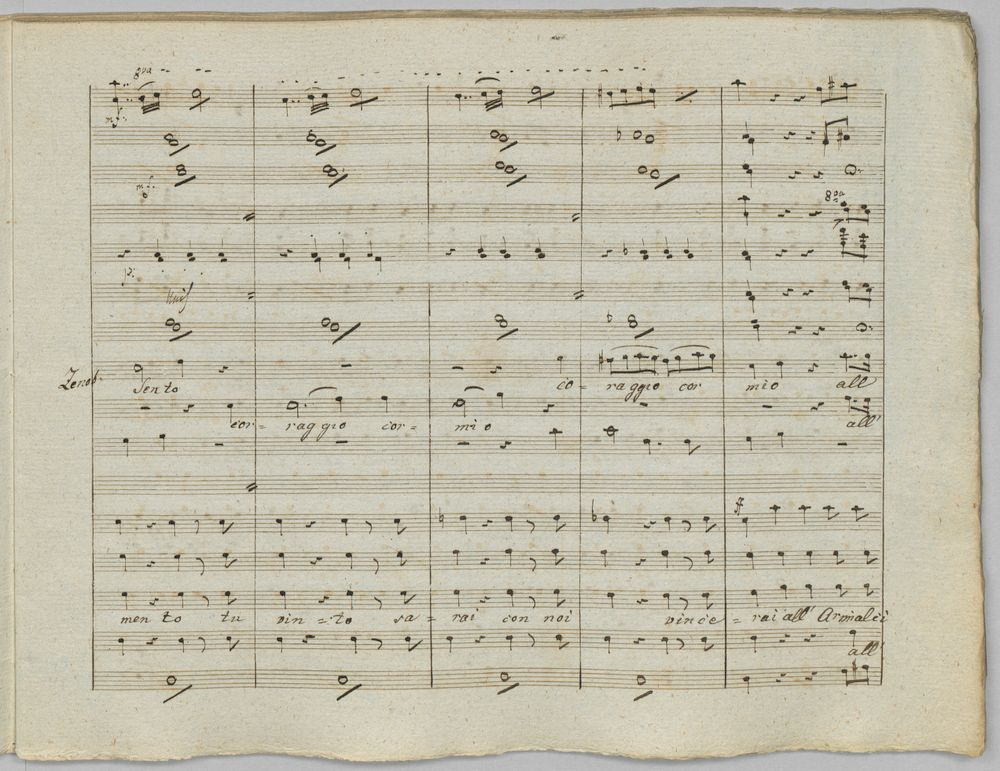 8va
m.f.
m.f.
8va
p:
unis
Zenob:
Sento co = raggio cor mio all
cor = raggio cor = mio all'
men to tu vin = to sa = rai con noi vince = rai all' Armi al ci
all'